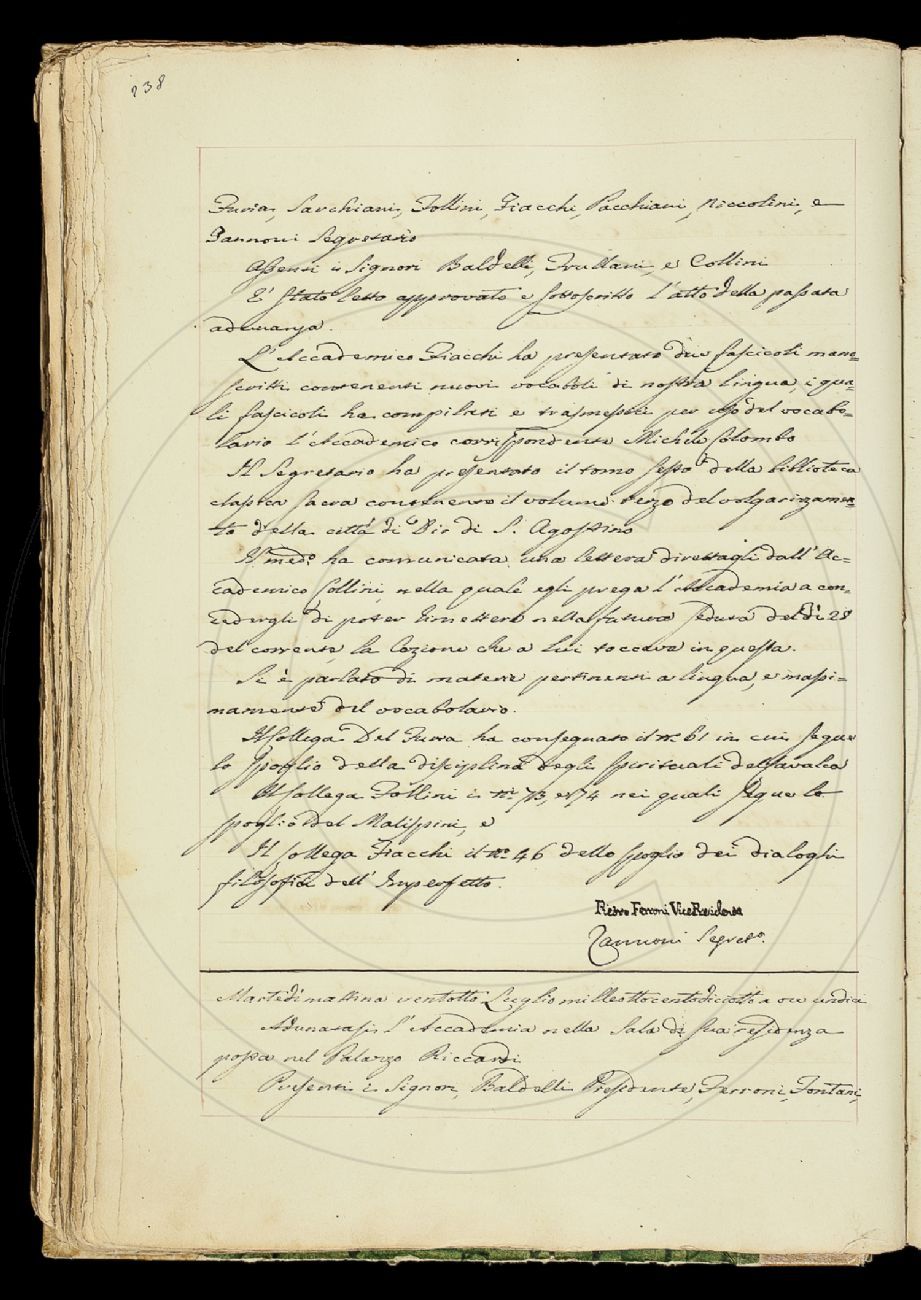 238
Furia, Sarchiani, Follini, Fiacchi, Pacchiani, Niccolini, e
Zannoni Segretario
Assenti i Signori Baldelli, Frullani, e Collini
E' stato letto approvato e sottoscritto l'atto della passata
adunanza.
L'Accademico Fiacchi ha presentato due fascicoli mano=
scritti contenenti nuovi vocaboli di nostra lingua, i qua=
li fascicoli ha compilati e trasmessi per uso del vocabo=
lario l'Accademico corrispondente Michele Colombo
Il Segretario ha presentato il tomo sesto della biblioteca
classica sacra contenente il volume terzo del volgarizzamen=
to della città di Dio di S. Agostino
Il med.º ha comunicata una lettera direttagli dall'Ac=
cademico Collini, nella quale egli prega l'Accademia a con=
cedergli di poter rimettere nella futura seduta del dì 28
del corrente la Lezione che a lui toccava in questa.
Si è parlato di materie pertinenti a lingua, e massi=
mamente del vocabolario.
Il Collega Del Furia ha consegnato il n.º 61 in cui segue
lo spoglio della disciplina degli spirituali del Cavalca
Il Collega Follini i n.i 73, e 74 nei quali segue lo
spoglio del Malispini, e
Il Collega Fiacchi il n.º 46 dello spoglio dei dialoghi
filosofici dell'Imperfetto.
Pietro Ferroni Vice Presidente
Zannoni Segret.º
Martedì mattina ventotto Luglio milleottocentodiciotto a ore undici
Adunatasi l'Accademia nella Sala di sua residenza
posta nel Palazzo Riccardi
Presenti i Signori, Baldelli Presidente, Ferroni, Fontani,